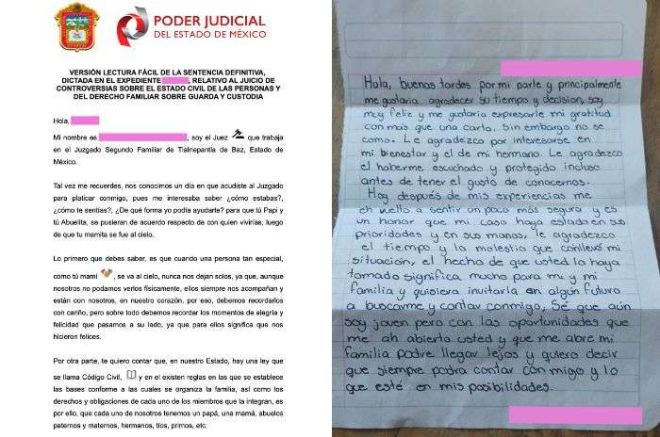 PODER JUDICIAL
DEL ESTADO DE MÉXICO
VERSIÓN LECTURA FÁCIL DE LA SENTENCIA DEFINITIVA,
DICTADA EN EL EXPEDIENTE , RELATIVO AL JUICIO DE
CONTROVERSIAS SOBRE EL ESTADO CIVIL DE LAS PERSONAS Y
DEL DERECHO FAMILIAR SOBRE GUARDA Y CUSTODIA
Hola,
Mi nombre es , soy el Juez que trabaja
en el Juzgado Segundo Familiar de Tlalnepantla de Baz, Estado de
México.
Tal vez me recuerdes, nos conocimos un día en que acudiste al Juzgado
para platicar conmigo, pues me interesaba saber ¿cómo estabas?,
¿cómo te sentías?, ¿De qué forma yo podía ayudarte? para que tú Papi y
tú Abuelita, se pusieran de acuerdo respecto de con quien vivirías, luego
de que tu mamita se fue al cielo.
Lo primero que debes saber, es que cuando una persona tan especial,
como tú mami , se va al cielo, nunca nos dejan solos, ya que, aunque
nosotros no podamos verlos físicamente, ellos siempre nos acompañan y
están con nosotros, en nuestro corazón, por eso, debemos recordarlos
con cariño, pero sobre todo debemos recordar los momentos de alegría y
felicidad que pasamos a su lado, ya que para ellos significa que nos
hicieron felices.
Por otra parte, te quiero contar que, en nuestro Estado, hay una ley que
se llama Código Civil, y en el existen reglas en las que se establece
las bases conforme a las cuales se organiza la familia, así como los
derechos y obligaciones de cada uno de los miembros que la integran, es
por ello, que cada uno de nosotros tenemos un papá, una mamá, abuelos
paternos y maternos, hermanos, tíos, primos, etc.
Hola, buenas tardes por mi parte y principalmente
me gustaria agradecer su tiempo y decision, soy
muy feliz y me gustaria expresarle mi gratitud
con mas que una carta, sin embargo no se
como. Le agradezco por interesarse en
mi bienestar y el de mi hermano. Le agradezco
el haberme escuchado y protegido incluso
antes de tener el gusto de conocernos.
Hoy después de mis experiencias me
eh vuelto a sentir un poco más segura y es
un honor que mi caso haya estado en sus
prioridades y en sus manos, le agradezco
el tiempo y la molestia que conllevó mi
situación, el hecho de que usted lo haya
tomado significa mucho para mi y mi
familia y quisiera invitarla en algún futuro
a buscarme y contar conmigo, Sé que aún
soy joven pero con las oportunidades que
me ah abierto usted y que me abre mi
familia podre llegar lejos y quiero decir
que siempre podra contar con migo y lo
que esté en mis posibilidades.